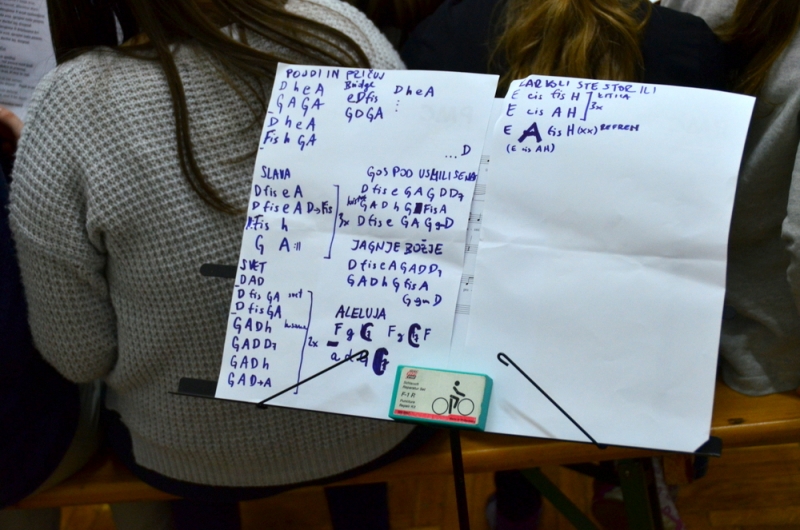 POJDI IN PRIČUJ
D h e A
G A G A
D h e A
Fis h G A
Bridge
e D fis
G D G A
D h e A
:
... D
SLAVA
D fis e A
D fis e A D→Fis
Fis h
G A :||
3x
SVET
D A D
D fis G A svet
D fis G A
G A D h
G A D D7
G A D h
G A D→A
2x
GOSPOD USMILI SE NAS
D fis e G A G D D7
G A D h G Fis A
D fis e G A G gm D
JAGNJE BOŽJE
D fis e A G A D D7
G A D h G fis A
G gm D
ALELUJA
F g C F g C F
a d g C
KARKOLI STE STORILI
E cis fis H
E cis A H
KITICA
3x
E A fis H (xx) REFREN
(E cis A H)